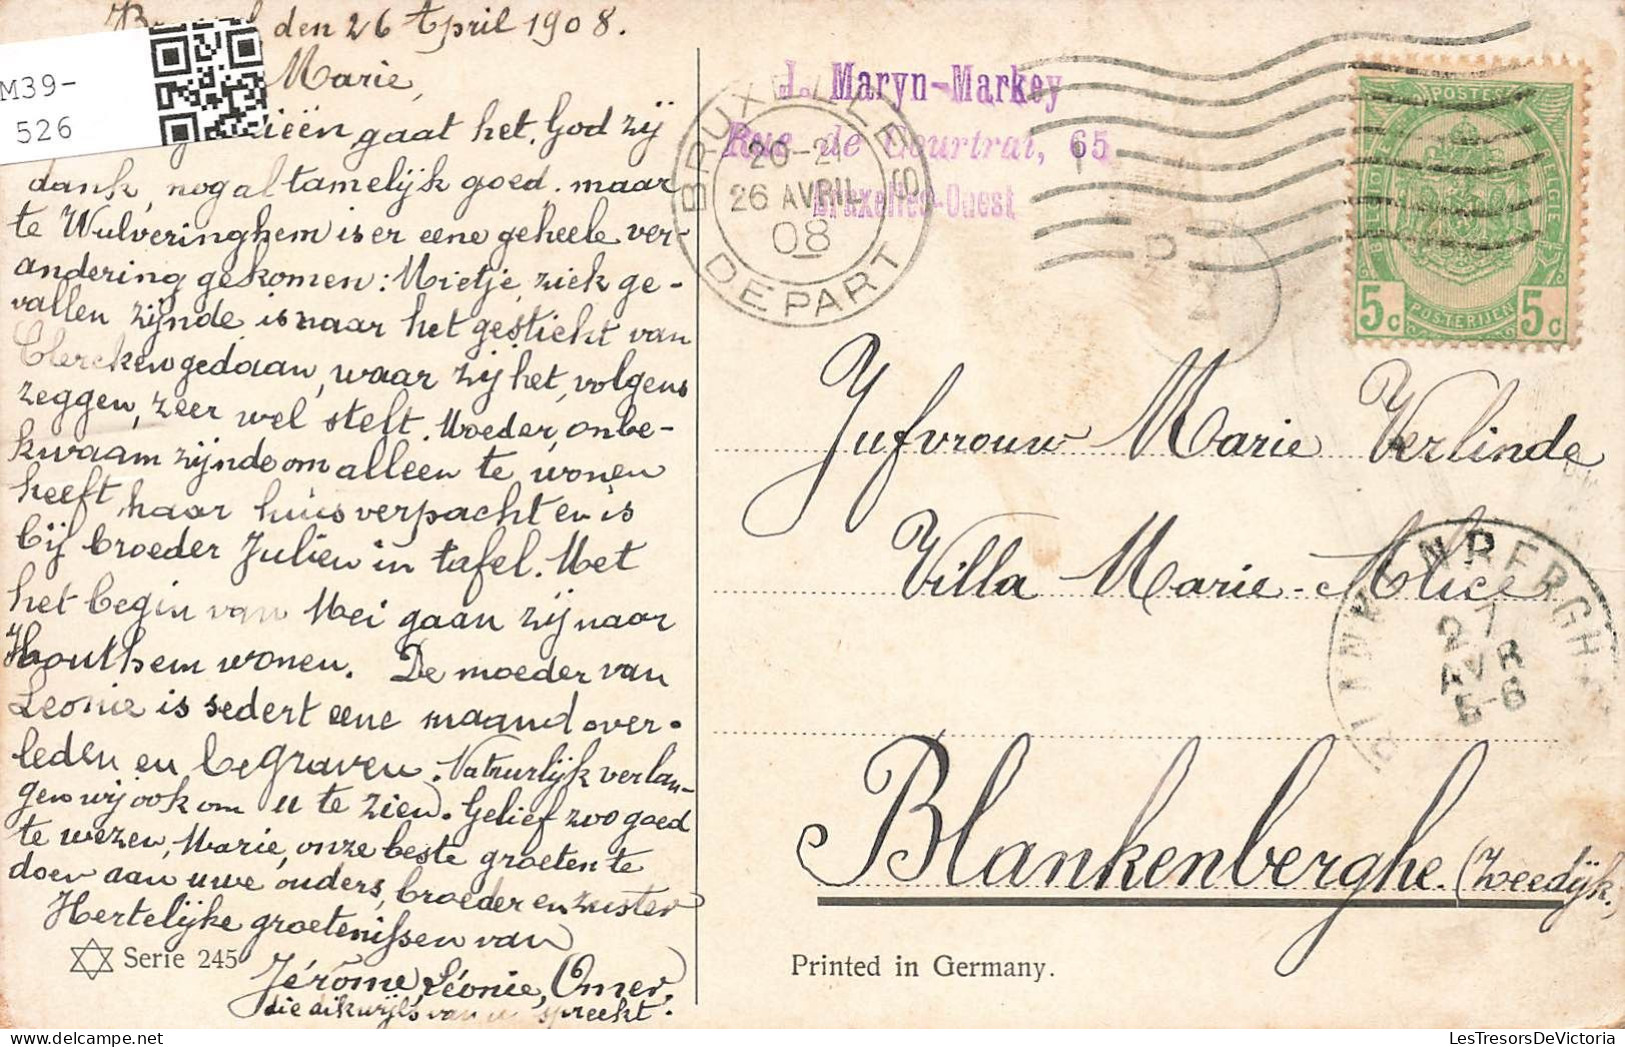 den 26 April 1908.
M39-
526
Marie,
gaat het, God zij
dank, nog al tamelijk goed. maar
te Wulveringhem is er eene geheele ver-
andering gekomen: Mietje, ziek ge-
vallen zijnde is naar het gesticht van
Clercken gedaan, waar zij het, volgens
zeggen, zeer wel stelt. Moeder, onbe-
kwaam zijnde om alleen te wonen
heeft haar huis verpacht en is
bij broeder Julien in tafel. Met
het begin van Mei gaan zij naar
Houthem wonen. De moeder van
Leonie is sedert eene maand over-
leden en begraven. Natuurlijk verlan-
gen wij ook om u te zien. Gelief zoo goed
te wezen, Marie, onze beste groeten te
doen aan uwe ouders, broeder en zuster
Hertelijke groetenissen van
Jérôme, Léonie, Omer,
die dikwijls van u spreekt.
Serie 245
J. Maryn-Markey
Rue de Courtrai, 65
Bruxelles-Ouest
BRUXELLES
20-21
26 AVRIL
08
DEPART
POSTES
BELGIQUE
BELGIE
5c
POSTERIJEN
5c
Jufvrouw Marie Verlinde
Villa Marie-Alice
BLANKENBERGHE
27
AVR
5-6
Blankenberghe. (Zeedijk.)
Printed in Germany.
LesTresorsDeVictoria